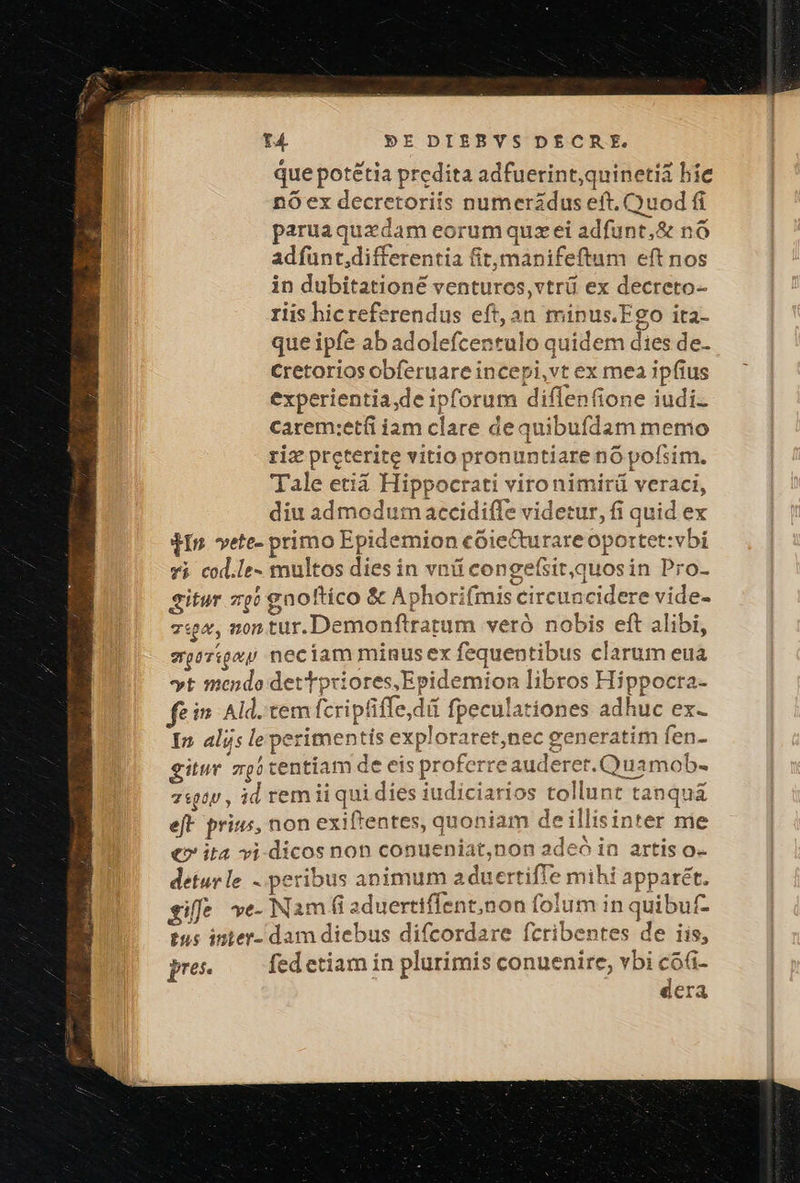 14 DE DIEBVS DECRE.
que potẽtia predita adfuerint,quinetiã hic
nõ ex decretoriis numerãdus eſt. Quod ſi
parua quædam eorum quæ ei adſunt,& nõ
adſunt,differentia ſit,manifeſtum eſt nos
in dubitationẽ venturos,vtrũ ex decreto-
riis hic referendus eſt, an minus.Ego ita-
que ipſe ab adoleſcentulo quidem dies de-
cretorios obſeruare incepi,vt ex mea ipſius
experientia,de ipſorum diſſenſione iudi-
carem:etſi iam clare de quibuſdam memo
riæ preterite vitio pronuntiare nõ poſsim.
Tale etiã Hippocrati viro nimirũ veraci,
diu admodum accidiſſe videtur, ſi quid ex
‡In vete- primo Epidemion cõiecturare oportet:vbi
ri cod.le- multos dies in vnũ congeſsit,quos in Pro-
gitur πρὸ gnoſtico & Aphoriſmis circuncidere vide-
τερα, non tur.Demonſtratum verò nobis eſt alibi,
προτέρων nec iam minus ex ſequentibus clarum eua
vt mendo det‡priores,Epidemion libros Hippocra-
ſe in Ald. tem ſcripſiſſe,dũ ſpeculationes adhuc ex-
In alijs le perimentis exploraret,nec generatim ſen-
gitur πρό tentiam de eis proferre auderet.Quamob-
τερον, id rem ii qui dies iudiciarios tollunt tanquã
eſt prius, non exiſtentes, quoniam de illis inter me
& ita vi- dicos non conueniat,non adeò in artis o-
detur le - peribus animum aduertiſſe mihi apparẽt.
giſſe ve- Nam ſi aduertiſſent,non ſolum in quibuſ-
tus inter- dam diebus diſcordare ſcribentes de iis,
pres. ſed etiam in plurimis conuenire, vbi cõſi-
dera